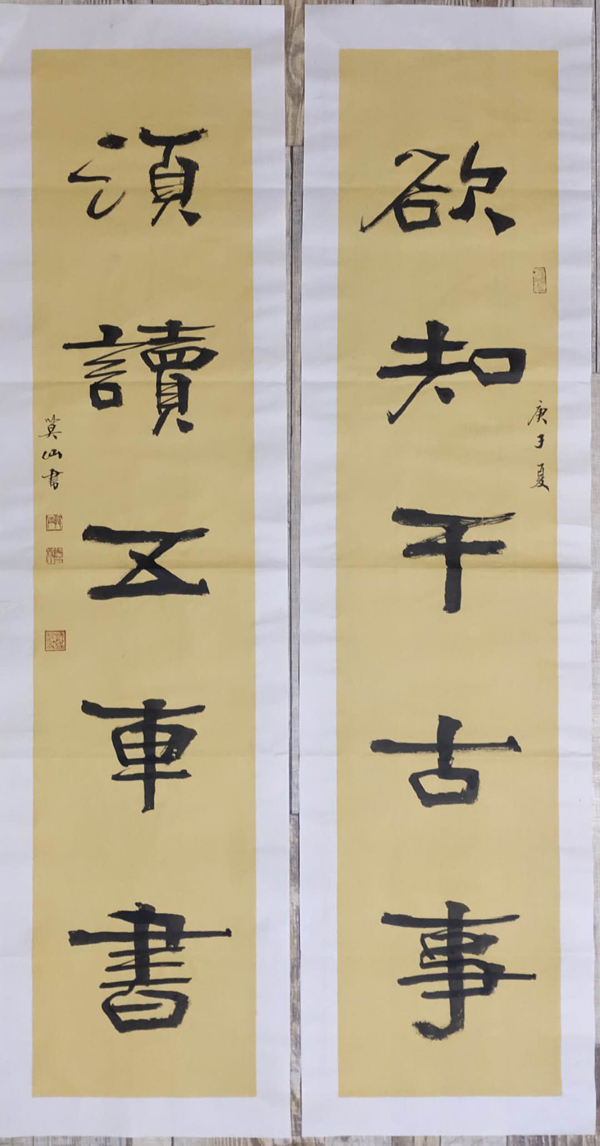 欲知千古事
庚子夏
湏讀五車書
山书